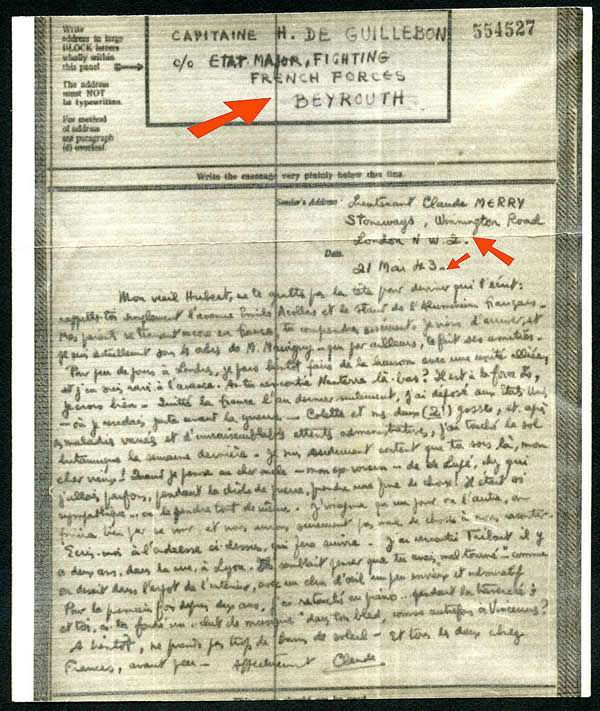 Write
address in large
BLOCK letters
wholly within
this panel
The address
must NOT
be typewritten.
For method
of address
see paragraph
(d) overleaf.
CAPITAINE H. DE GUILLEBON
c/o ETAT MAJOR, FIGHTING
FRENCH FORCES
BEYROUTH
554527
Write the message very plainly below this line.
Sender's Address: Lieutenant Claude MERRY
Stoneways, Winnington Road
London N W. 2.
Date.
21 Mai 43.
Mon vieil Hubert, ne te gratte pas la tête pour deviner qui t'écrit:
rappelle-toi simplement l'avenue Emile Acollas et le stand de l'Aluminium français.
Mes parents se trouvant encore en France, tu comprendras aisément. Je viens d'arriver, et
je suis actuellement sous les ordres de M. qui par ailleurs, te fait ses amitiés.
Pour peu de jours à Londres, je pars bientôt faire de la liaison avec une unité alliée,
et j'en suis ravi à l'avance. As-tu rencontré Nanterre là-bas? Il est à la force
je crois bien - Quitté la France l'an dernier seulement, j'ai déposé aux Etats Unis
- où je résidais juste avant la guerre - Colette et mes deux (2!) gosses, et, après
maladies variées et d'invraisemblables attentes administratives, j'ai touché le sol
britannique la semaine dernière - Je suis rudement content que tu sois là, mon
cher vieux! Quand je pense au cher oncle - mon ex voisin - de chez qui
j'allais parfois, pendant la drôle de guerre, prendre une Il était si
sympathique tout de même. J'imagine qu'un jour ou l'autre, on
finira bien par se voir et nous aurons sûrement pas mal de choses à nous raconter.
Ecris-moi à l'adresse ci-dessus, qui fera suivre. J'ai rencontré il y
a deux ans, dans la rue, à Lyon. Il semblait penser que tu avais mal tourné - comme
on disait dans l'argot de l'intérieur, avec un clin d'oeil un peu envieux et admiratif
Pour la première fois depuis deux ans, j'ai retouché au piano pendant la traversée;
et toi, as-tu fondé un "club de musique" dans ton bled, comme autrefois à Vincennes?
A bientôt, ne prends pas trop de bains de soleil - Et tous les deux chez
Frances, avant peu - Affectueusement Claude